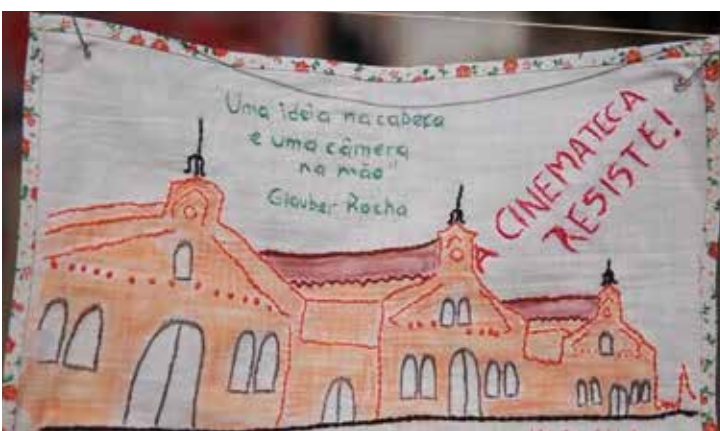 "Uma ideia na cabeça
e uma câmera
na mão"
Glauber Rocha
A CINEMATECA
RESISTE!